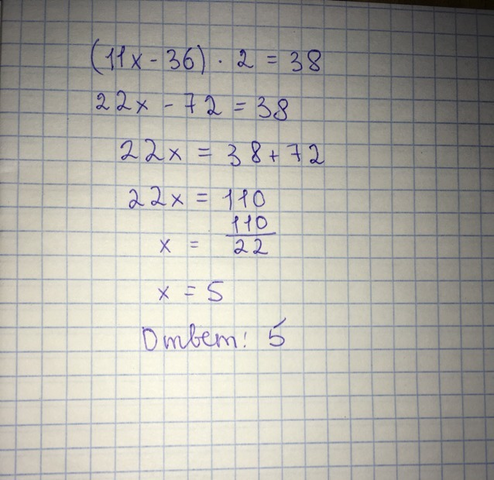 (11x - 36) · 2 = 38
22x - 72 = 38
22x = 38 + 72
22x = 110
x = 110/22
x = 5
Ответ: 5